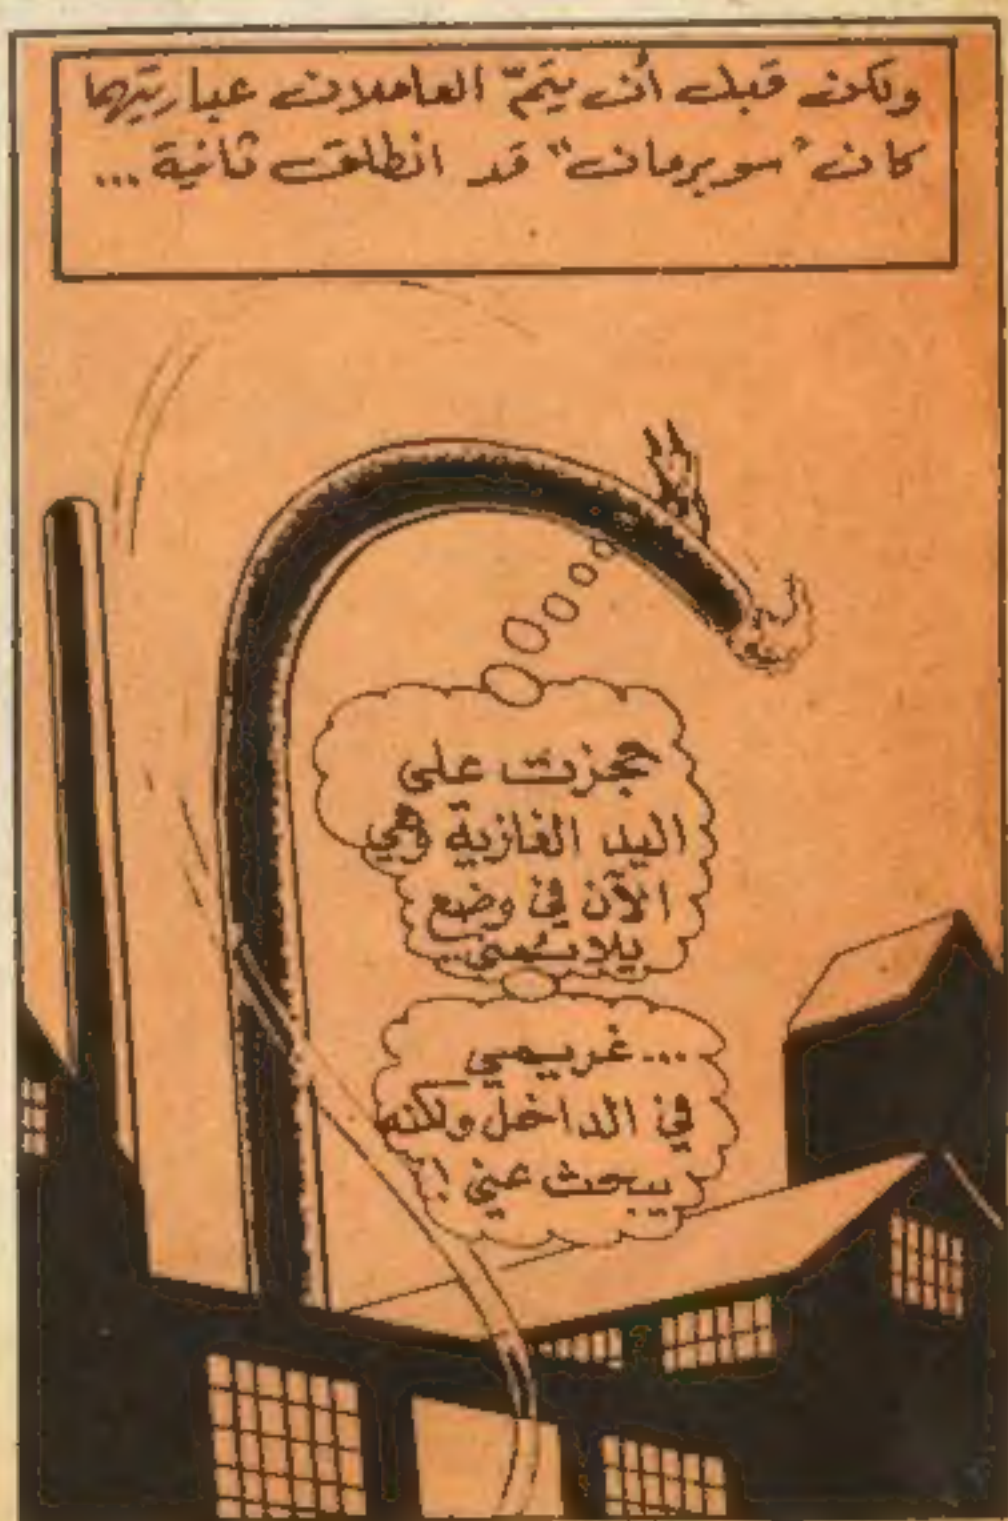 ولكن قبل أن يتمّ العاملان عبارتيهما
كان "سوبرمان" قد انطلق ثانية...
حجزت على
اليد الغازية وهي
الآن في وضع
يلائمني..
...غريمي
في الداخل ولكنه
يبحث عني!